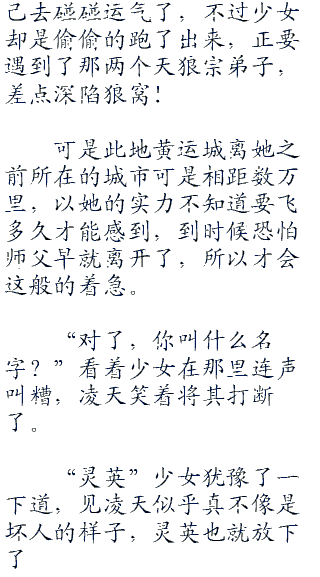 己去碰碰运气了，不过少女
却是偷偷的跑了出来，正要
遇到了那两个天狼宗弟子，
差点深陷狼窝！
可是此地黄运城离她之
前所在的城市可是相距数万
里，以她的实力不知道要飞
多久才能感到，到时候恐怕
师父早就离开了，所以才会
这般的着急。
“对了，你叫什么名
字？”看着少女在那里连声
叫糟，凌天笑着将其打断
了。
“灵英”少女犹豫了一
下道，见凌天似乎真不像是
坏人的样子，灵英也就放下
了